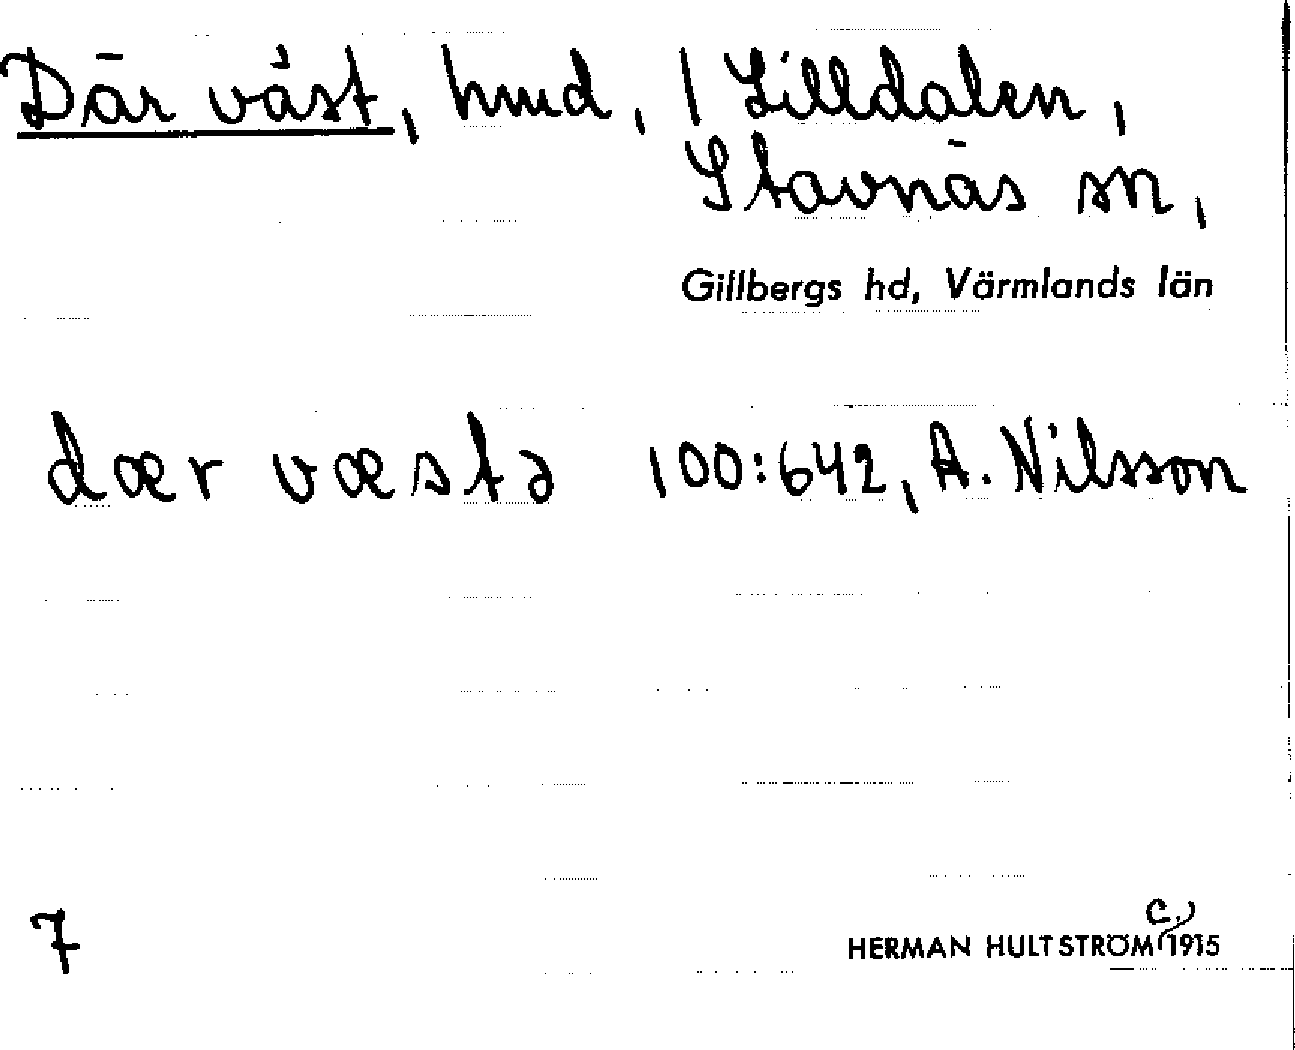 Där väst, hmd, 1 Lilldalen,
Stavnäs sn,
Gillbergs hd, Värmlands län
dær væstə 100:642, A. Nilsson
7
HERMAN HULTSTRÖM c. 1915